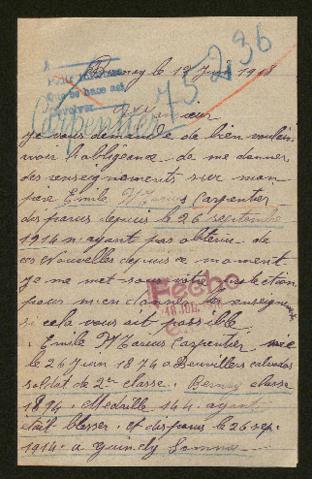 Bernay le 13 Juin 1918
75236
Carpentier
Monsieur
je vous demande de bien vouloir
avoir l'obligeance de me donner
des renseignements sur mon
père Emile Marius Carpentier
disparus depuis le 26 septembre
1914 n'ayant pas obtenue de
ces Nouvelles depuis ce moment
je me met sous votre protection
pour m'en donner les renseignements
si cela vous ait possible.
Fecho
18 JUIL.
Emile Marius Carpentier née
le 26 Juin 1874 a Beuvillers calvados
soldat de 2me classe. Bernay classe
1894. Medaille 144. ayant
etait blesser. et disparus le 26 sep.
1914. a Guincly Somme